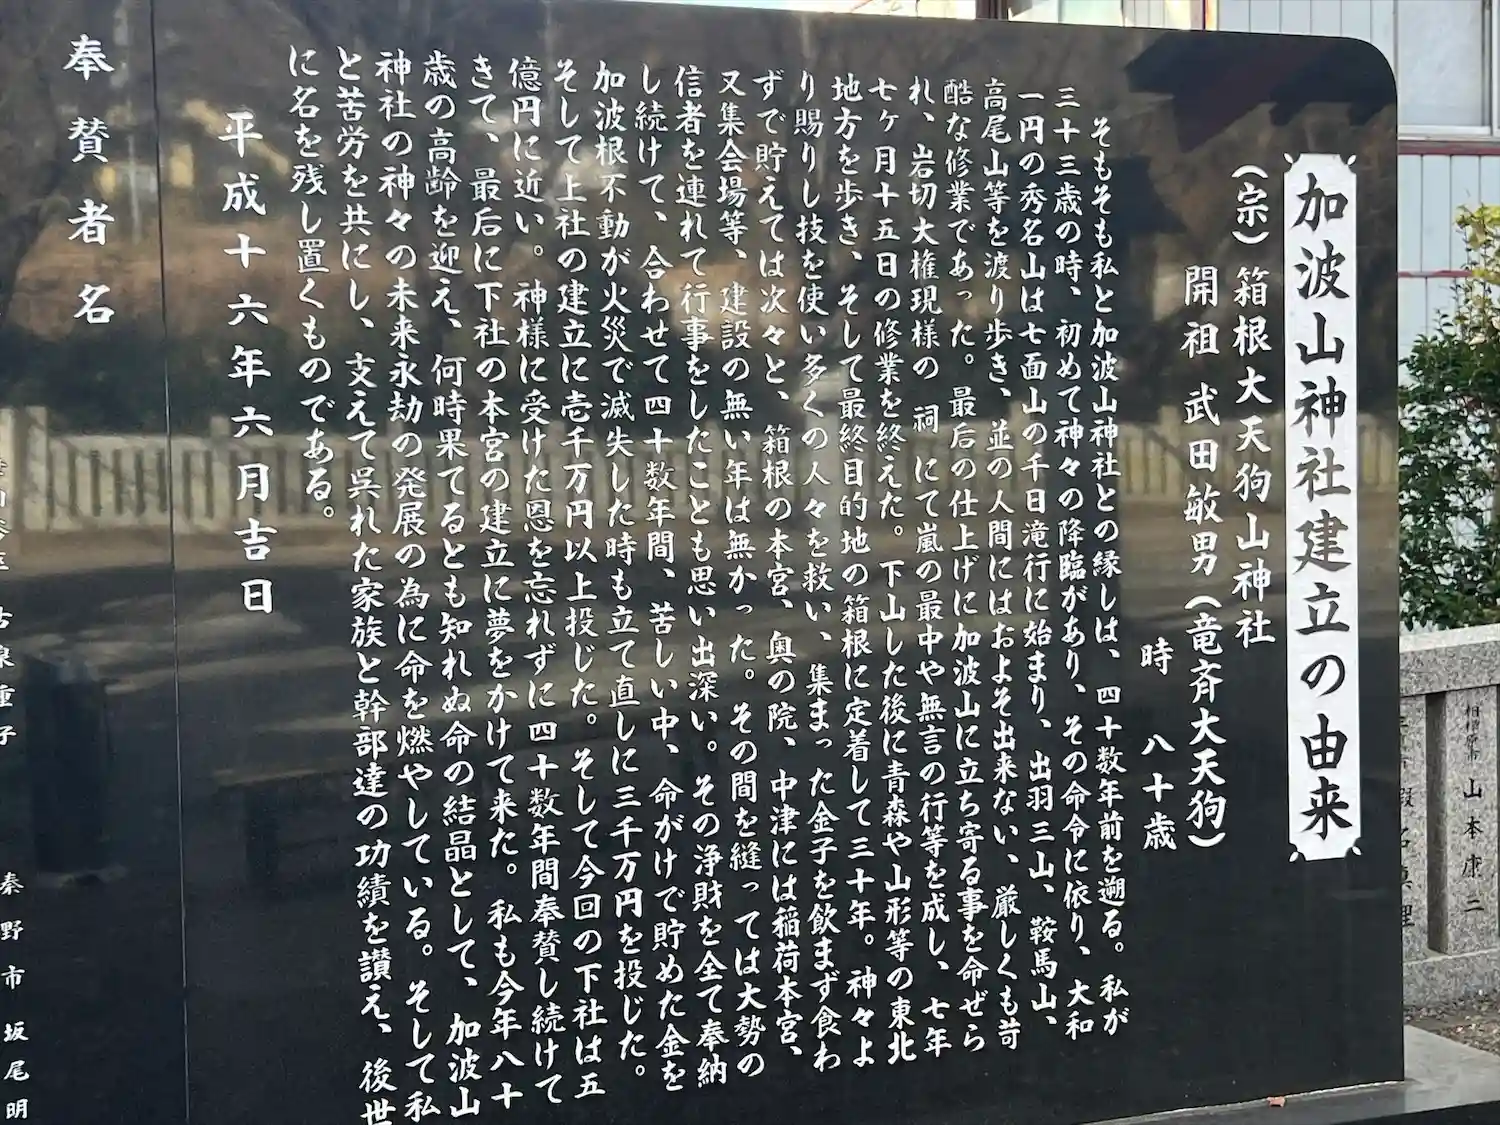 加波山神社建立の由来
(宗)箱根大天狗山神社
開祖 武田敏男(竜斉大天狗)
時 八十歳
そもそも私と加波山神社との縁しは、四十数年前を遡る。私が
三十三歳の時、初めて神々の降臨があり、その命令に依り、大和
一円の秀名山は七面山の千日滝行に始まり、出羽三山、鞍馬山、
高尾山等を渡り歩き、並の人間にはおよそ出来ない、厳しくも苛
酷な修業であった。最后の仕上げに加波山に立ち寄る事を命ぜら
れ、岩切大権現様の祠にて嵐の最中や無言の行等を成し、七年
七ヶ月十五日の修業を終えた。下山した後に青森や山形等の東北
地方を歩き、そして最終目的地の箱根に定着して三十年。神々よ
り賜りし技を使い多くの人々を救い、集まった金子を飲まず食わ
ずで貯えては次々と、箱根の本宮、奥の院、中津には稲荷本宮、
又集会場等、建設の無い年は無かった。その間を縫っては大勢の
信者を連れて行事をしたことも思い出深い。その浄財を全て奉納
し続けて、合わせて四十数年間、苦しい中、命がけで貯めた金を
加波根不動が火災で滅失した時も立て直しに三千万円を投じた。
そして上社の建立に壱千万円以上投じた。そして今回の下社は五
億円に近い。神様に受けた恩を忘れずに四十数年間奉賛し続けて
きて、最后に下社の本宮の建立に夢をかけて来た。私も今年八十
歳の高齢を迎え、何時果てるとも知れぬ命の結晶として、加波山
神社の神々の未来永劫の発展の為に命を燃やしている。そして私
と苦労を共にし、支えて呉れた家族と幹部達の功績を讃え、後世
に名を残し置くものである。
平成十六年六月吉日
奉賛者名
秦野市 坂尾明
山本康二